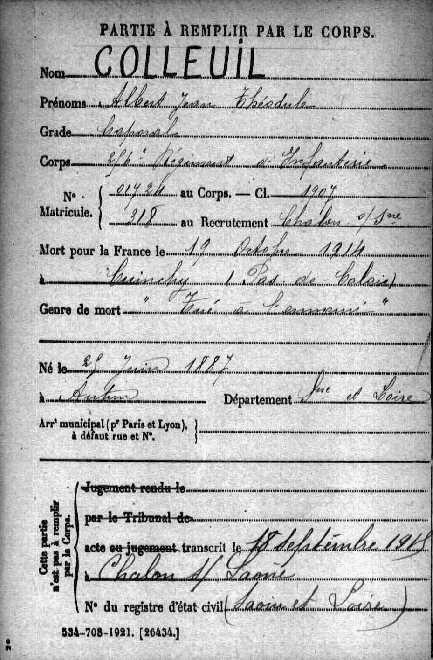 PARTIE À REMPLIR PAR LE CORPS.
Nom COLLEUIL
Prénoms Albert Jean Théodule
Grade Caporal
Corps Régiment d'Infanterie
Nº 01724 au Corps. — Cl. 1907
Matricule. 218 au Recrutement Chalon s/Sne
Mort pour la France le 19 Octobre 1914
à Cuinchy (Pas de Calais)
Genre de mort " Tué à l'ennemi "
Né le Juin 1887
à Autun Département Sne et Loire
Arrt municipal (pr Paris et Lyon),
à défaut rue et Nº.
Cette partie
n'est pas à remplir
par le Corps.
Jugement rendu le
par le Tribunal de
acte ou jugement transcrit le 18 septembre 1915
à Chalon s/ Saône
Nº du registre d'état civil (Saône et Loire)
534-708-1921. [26434.]